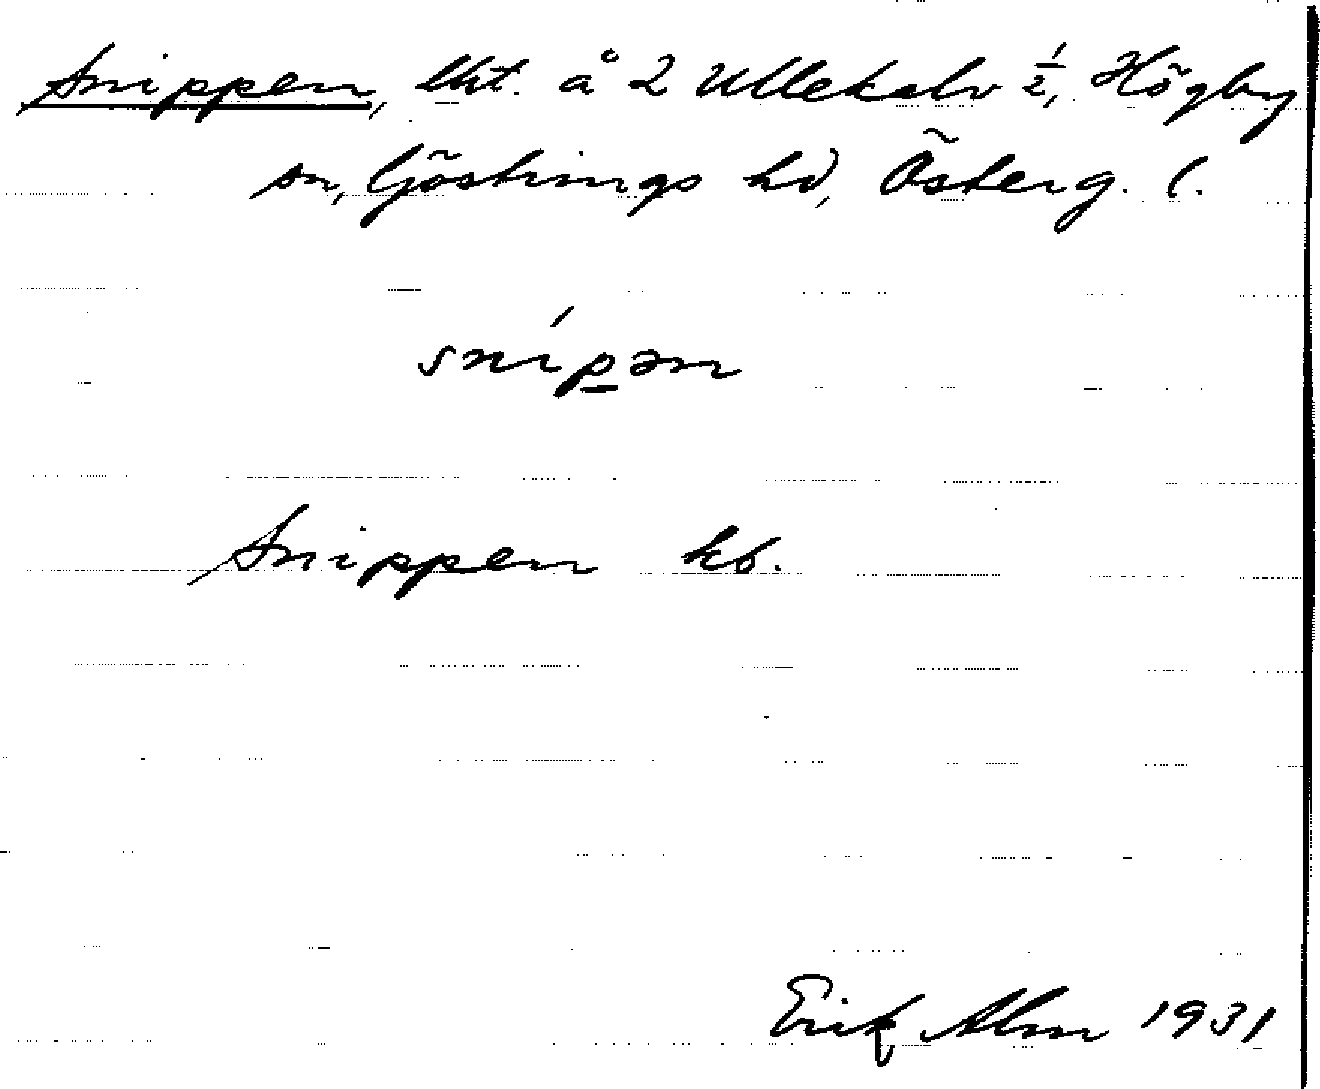 Snippen, lht. å 2 Ullekalv ½, Högby
sn, Göstrings hd, Österg. l.
sni´p̲ən
Snippen kb.
Erik Alm 1931